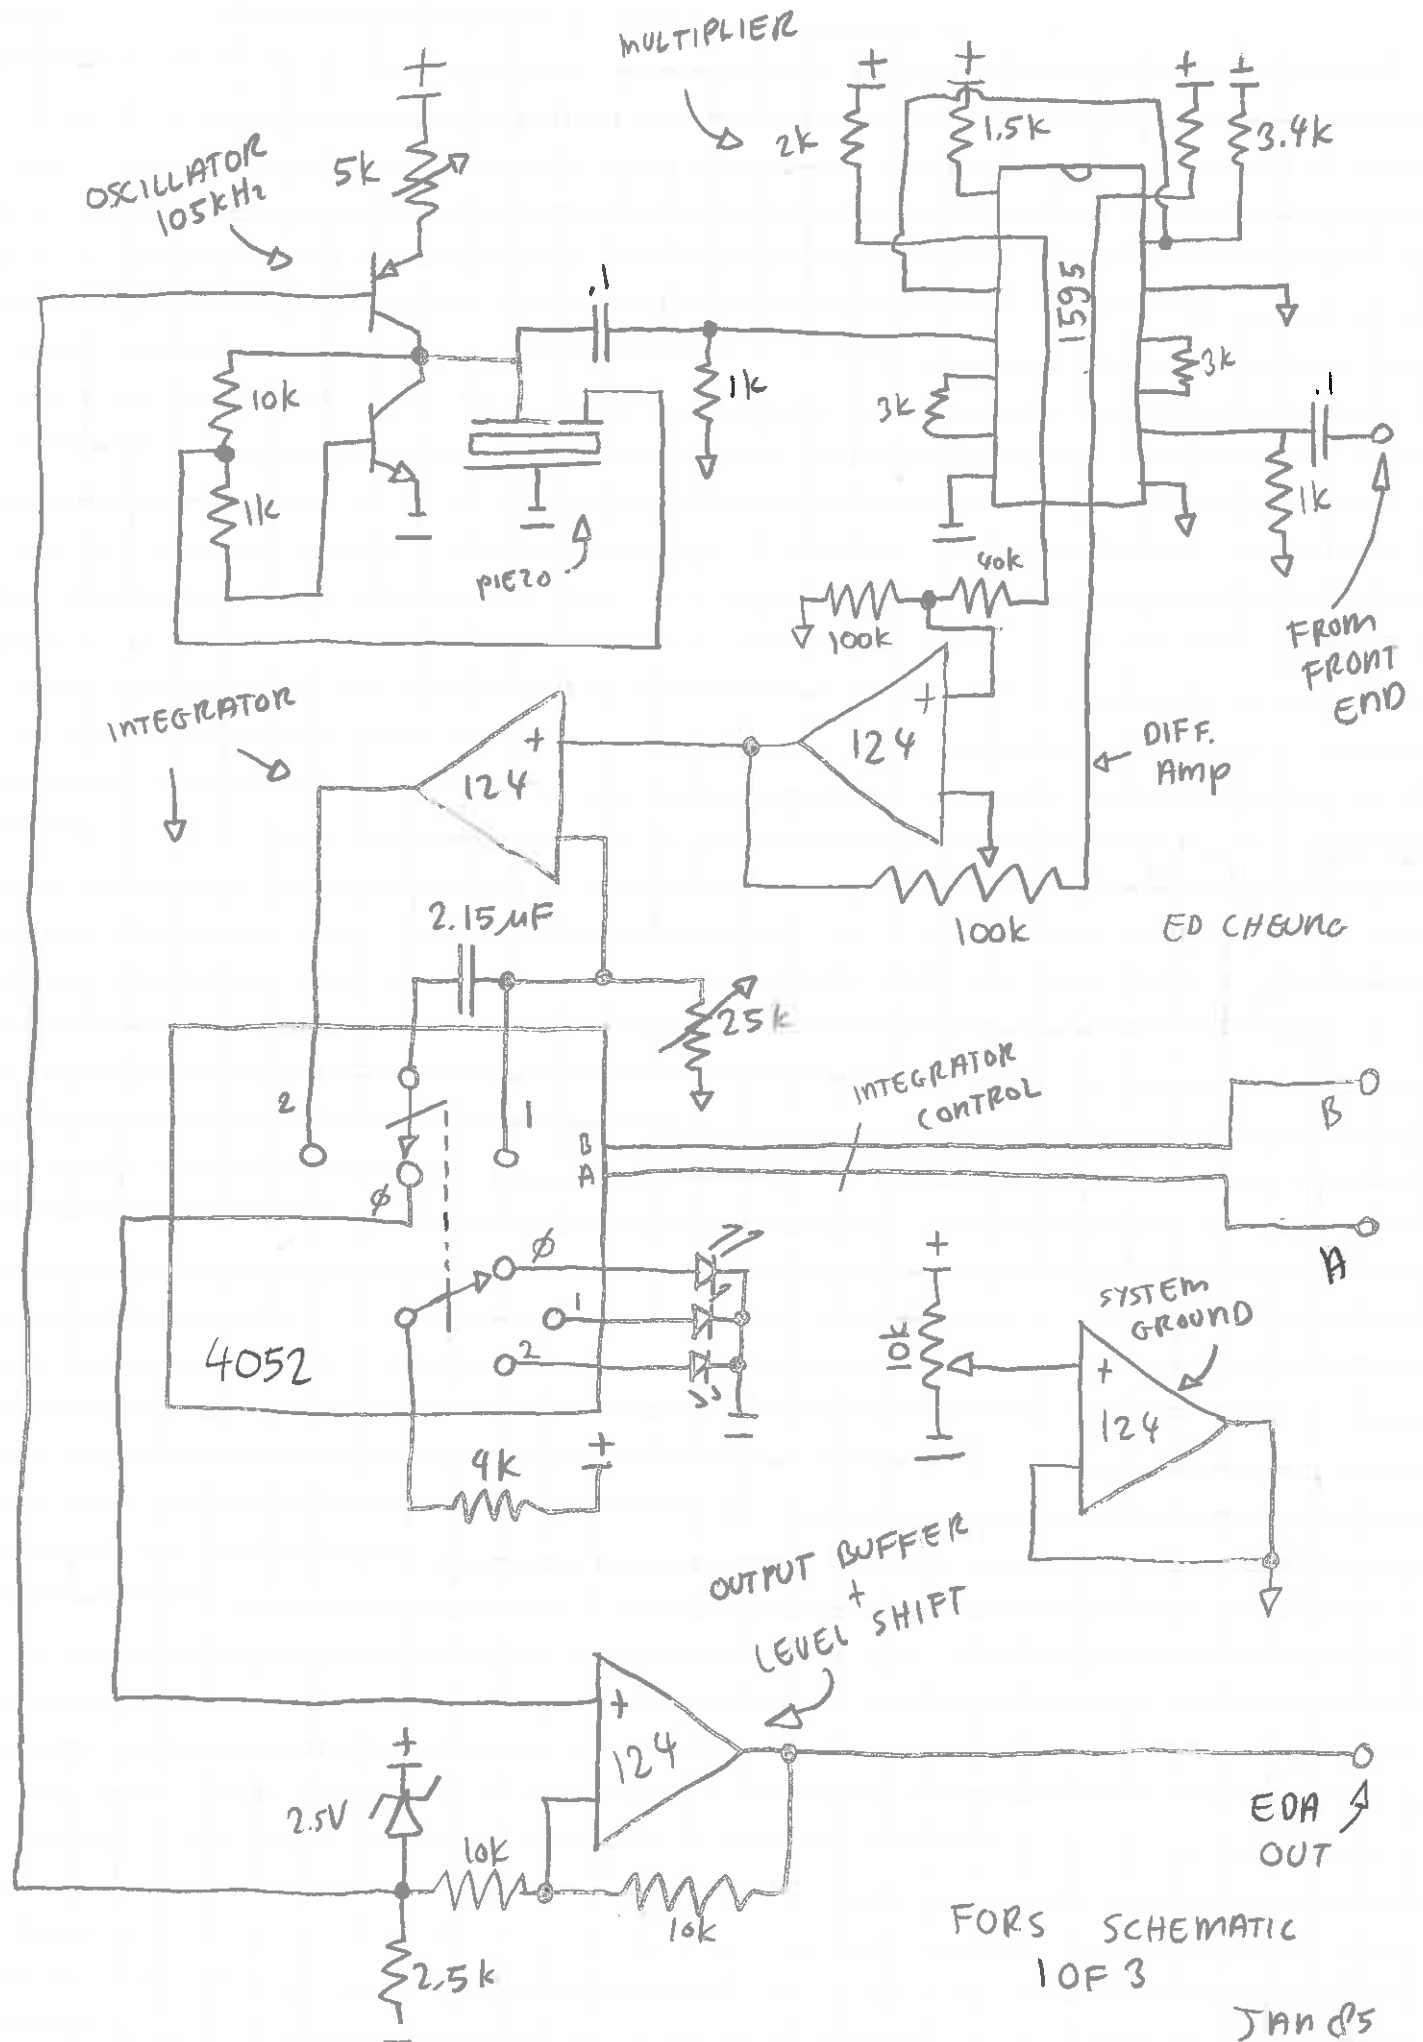 MULTIPLIER
OSCILLATOR
105kHz
5k
+
+
+
+
±
2k
1.5k
3.4k
1595
.1
10k
1k
1k
3k
3k
.1
1k
PIEZO
40k
100k
FROM
FRONT
END
INTEGRATOR
+
124
+
124
DIFF.
Amp
100k
2.15µF
ED CHEUNG
25k
INTEGRATOR
CONTROL
2
1
B
A
B
A
Ø
Ø
1
2
4052
+
10k
SYSTEM
GROUND
+
124
9k
+
OUTPUT BUFFER
+
LEVEL SHIFT
+
124
+
2.5V
10k
10k
2.5k
EDA
OUT
FORS SCHEMATIC
1 OF 3
JAN 85